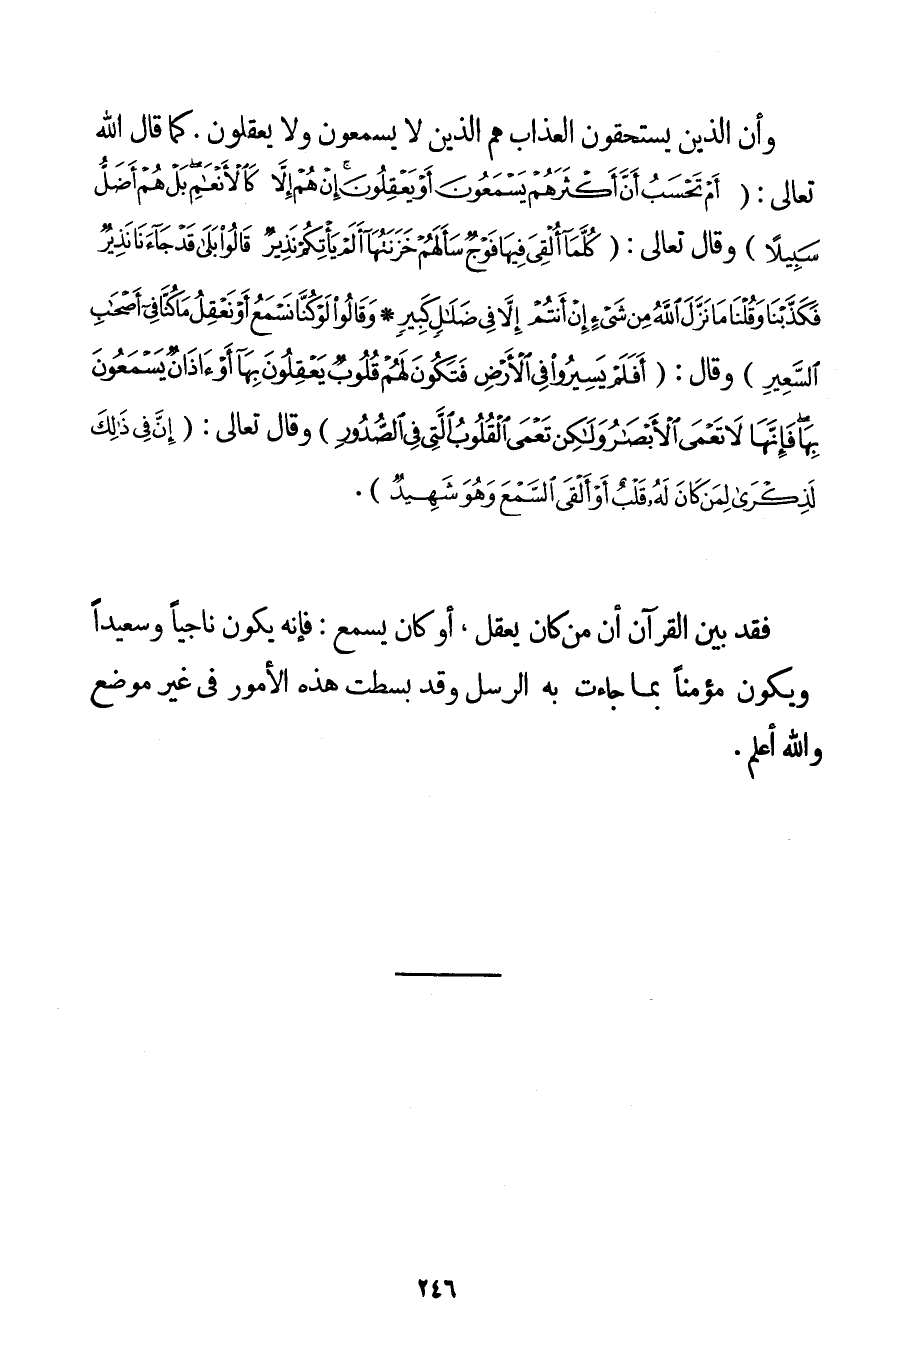 وأن الذين يستحقون العذاب هم الذين لا يسمعون ولا يعقلون . كما قال الله
تعالى : ( أَمْ تَحْسَبُ أَنَّ أَكْثَرَهُمْ يَسْمَعُونَ أَوْ يَعْقِلُونَ ۚ إِنْ هُمْ إِلَّا كَالْأَنْعَٰمِ ۖ بَلْ هُمْ أَضَلُّ
سَبِيلًا ) وقال تعالى : ( كُلَّمَآ أُلْقِىَ فِيهَا فَوْجٌ سَأَلَهُمْ خَزَنَتُهَآ أَلَمْ يَأْتِكُمْ نَذِيرٌ قَالُوا۟ بَلَىٰ قَدْ جَآءَنَا نَذِيرٌ
فَكَذَّبْنَا وَقُلْنَا مَا نَزَّلَ ٱللَّهُ مِن شَىْءٍ إِنْ أَنتُمْ إِلَّا فِى ضَلَٰلٍ كَبِيرٍ * وَقَالُوا۟ لَوْ كُنَّا نَسْمَعُ أَوْ نَعْقِلُ مَا كُنَّا فِىٓ أَصْحَٰبِ
ٱلسَّعِيرِ ) وقال : ( أَفَلَمْ يَسِيرُوا۟ فِى ٱلْأَرْضِ فَتَكُونَ لَهُمْ قُلُوبٌ يَعْقِلُونَ بِهَآ أَوْ ءَاذَانٌ يَسْمَعُونَ
بِهَا ۖ فَإِنَّهَا لَا تَعْمَى ٱلْأَبْصَٰرُ وَلَٰكِن تَعْمَى ٱلْقُلُوبُ ٱلَّتِى فِى ٱلصُّدُورِ ) وقال تعالى : ( إِنَّ فِى ذَٰلِكَ
لَذِكْرَىٰ لِمَن كَانَ لَهُۥ قَلْبٌ أَوْ أَلْقَى ٱلسَّمْعَ وَهُوَ شَهِيدٌ ) .
فقد بين القرآن أن من كان يعقل ، أو كان يسمع : فإنه يكون ناجياً وسعيداً
ويكون مؤمناً بما جاءت به الرسل وقد بسطت هذه الأمور فى غير موضع
والله أعلم .
٢٤٦